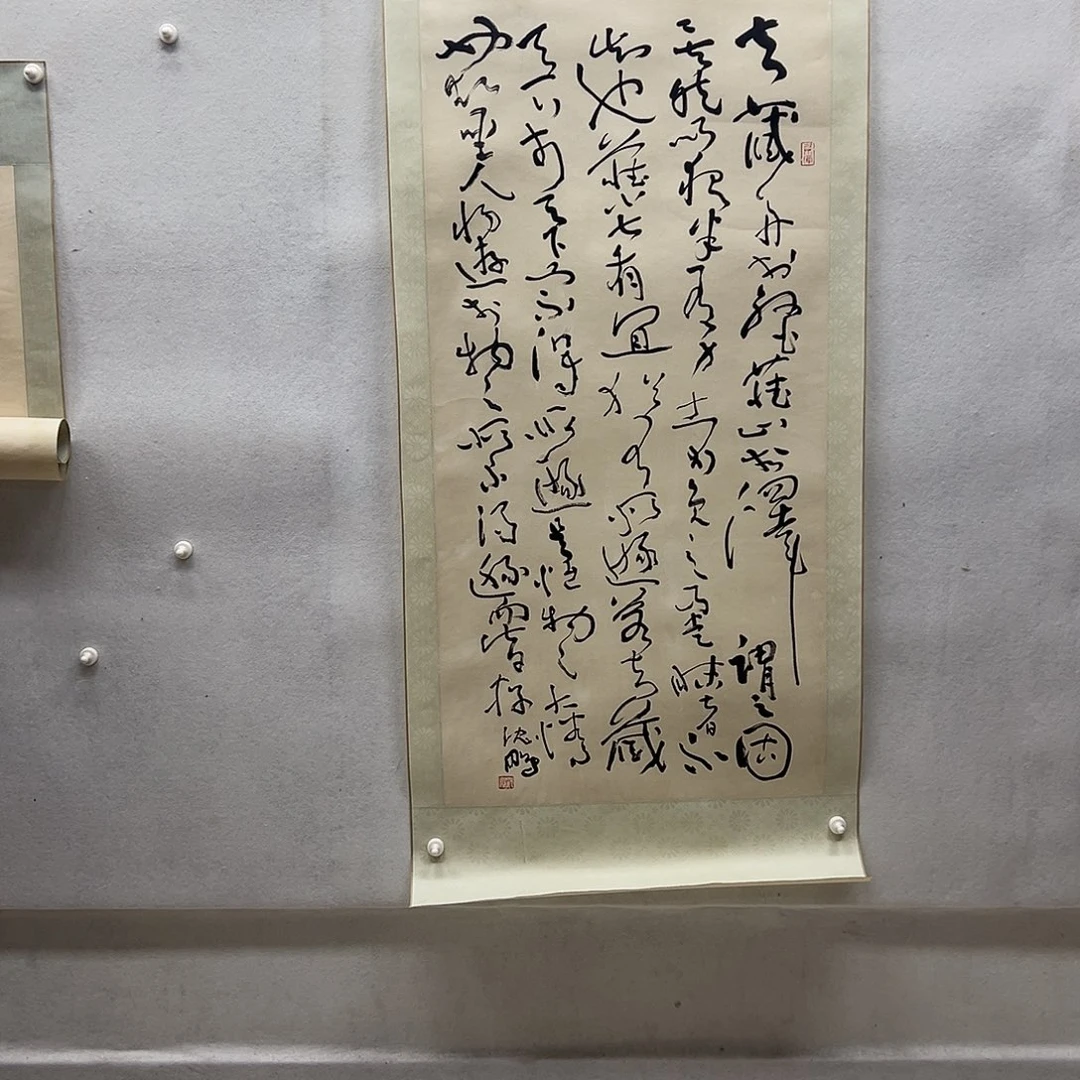 夫藏舟於壑藏山於澤謂之固
矣然而夜半有力者負之而走昧者不
知也藏小大有宜猶有所遯若夫藏
天下於天下而不得所遯是恒物之大情
也故聖人將遊於物之所不得遯而皆存
沈鵬